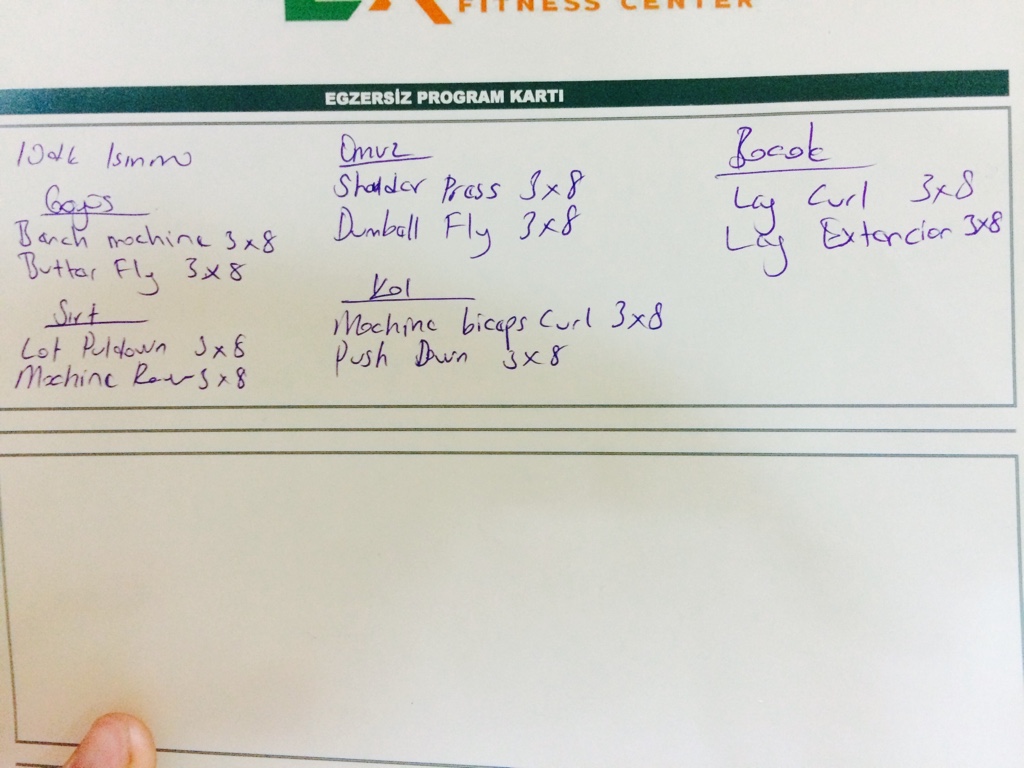 FITNESS CENTER
EGZERSİZ PROGRAM KARTI
10dk Isınma
Göğüs
Banch machine 3x8
Buttar Fly 3x8
Sırt
Lat Puldown 3x8
Machine Row 3x8
Omuz
Sholder Press 3x8
Dumball Fly 3x8
Kol
Machine biceps Curl 3x8
Push Down 3x8
Bacak
Leg Curl 3x8
Leg Extencion 3x8